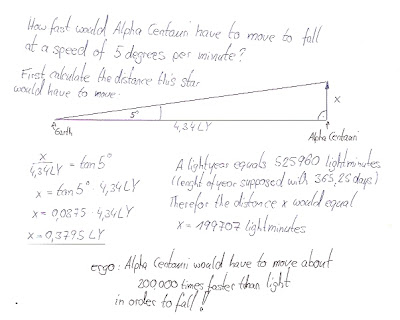 How fast would Alpha Centauri have to move to fall
at a speed of 5 degrees per minute?
First calculate the distance this star
would have to move.
x
5°
Earth
4,34 LY
Alpha Centauri
x/4,34LY = tan 5°
x = tan 5° · 4,34LY
x = 0,0875 · 4,34LY
x = 0,3795 LY
A lightyear equals 525960 lightminutes
(lenght of year supposed with 365,25 days)
Therefor the distance x would equal
x = 199707 lightminutes
ergo: Alpha Centauri would have to move about
200 000 times faster than light
in order to fall!